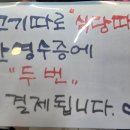 고기따로 "식당따
한 영수증에
"두 번"
결제됩니다.